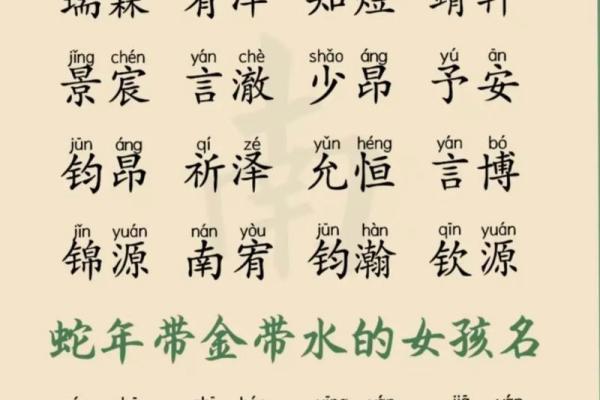 瑞霖 有泽 知煜 靖轩
jǐng chén yán chè shǎo áng yú ān
景宸 言澈 少昂 予安
jūn áng qí zé yǔn héng yán bó
钧昂 祈泽 允恒 言博
jǐn yuán nán yòu jūn hàn qīn yuán
锦源 南宥 钧瀚 钦源
南
蛇年带金带水的女孩名